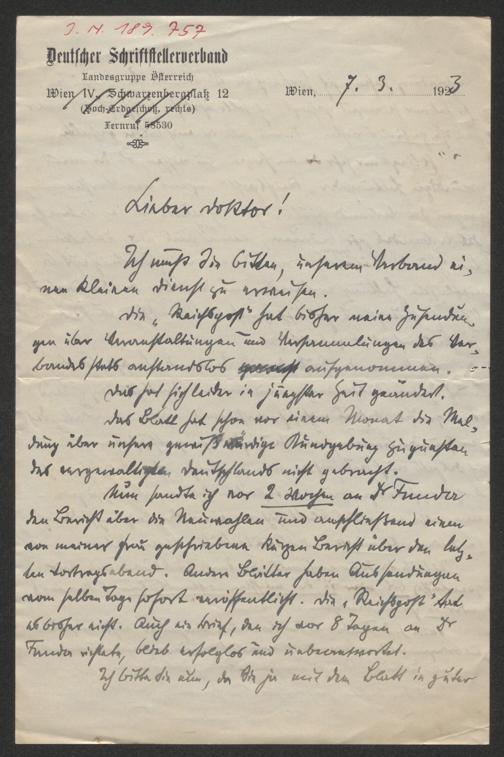 J. N. 189.757
Deutscher Schriftstellerverband
Landesgruppe Österreich
Wien IV, Schwarzenbergplatz 12
(Hoch-Erdgeschoß, rechts)
Fernruf 58530
Wien, 7. 3. 1923
Lieber Doktor!
Ich muß Sie bitten, unserem Verband ei-
nen kleinen Dienst zu erweisen.
Die „Reichspost" hat bisher meine Zusendun-
gen über Veranstaltungen und Versammlungen des Ver-
bandes stets anstandslos aufgenommen.
Das hat sich leider in jüngster Zeit geändert.
Das Blatt hat schon vor einem Monat die Mel-
dung über unsere gewiß würdige Kundgebung zugunsten
des vergewaltigten Deutschlands nicht gebracht.
Nun sandte ich vor 2 Wochen an Dr Funder
den Bericht über die Neuwahlen und anschließend einen
von meiner Frau geschriebenen kurzen Bericht über den letz-
ten Vortragsabend. Andere Blätter haben Aussendungen
vom selben Tage sofort veröffentlicht. Die „Reichspost" tat
es bisher nicht. Auch ein Brief, den ich vor 8 Tagen an Dr
Funder richtete, blieb erfolglos und unbeantwortet.
Ich bitte Sie nun, da Sie ja mit dem Blatt in guter